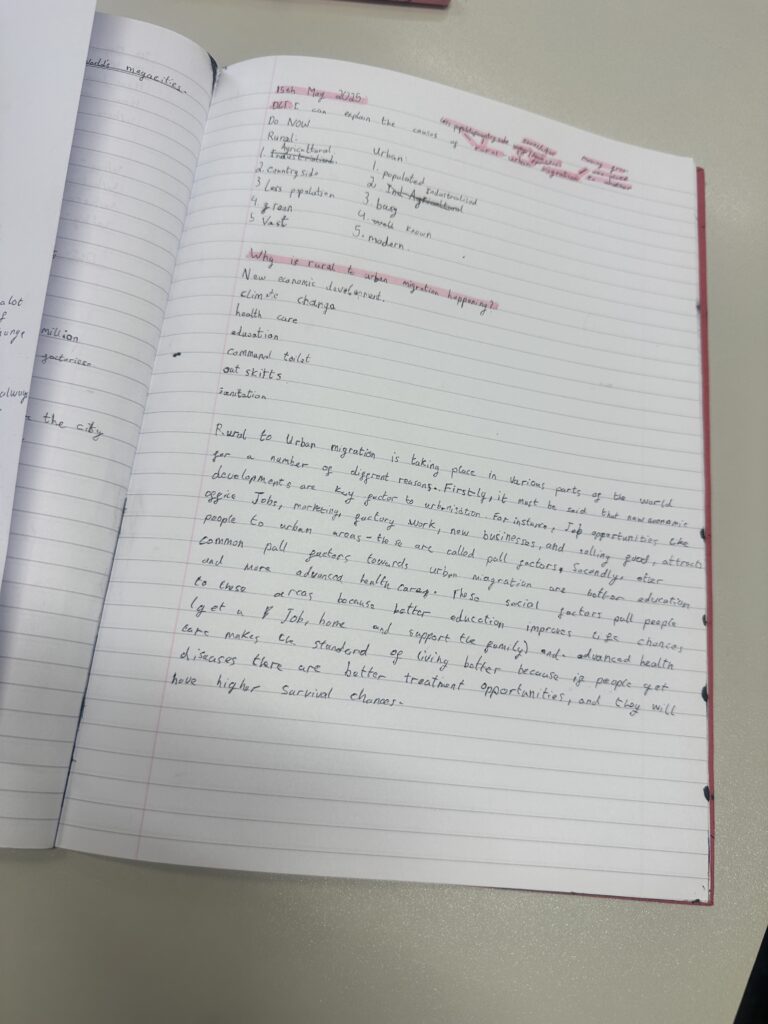 World's megacities.
alot
million
factories
always
the city
15th May 2025
DLI I can explain the causes of rural urban migration
Do NOW
Rural: Urban:
1. Agricultural 1. populated
2. Countryside 2. Industrialised
3 Less population 3. busy
4. green 4. well known
5 Vast 5. modern.
Why is rural to urban migration happening?
New economic development.
climate change
health care
education
command toilet
out skitts
sanitation
Rural to Urban migration is taking place in various parts of the world
for a number of diffrent reasons. Firstly, it must be said that new economic
developments are key factor to urbanisation. For instance, Job opportunities like
office Jobs, marketing, factory work, new businesses, and selling food, attracts
people to urban areas - these are called pull factors. Secondly, other
common pull factors towards urban migration are better education
and more advanced health care. These social factors pull people
to these areas because better education improves life chances
(get a Job, home and support the family) and advanced health
care makes the standard of living better because if people get
diseases there are better treatment opportunities, and they will
have higher survival chances.